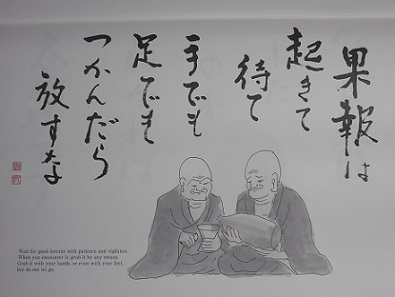 果報は
起きて
待て
手でも
足でも
つかんだら
放すな
Wait for good fortune with patience and vigilance.
When you encounter it grab it by any means.
Grab it with your hands, or even with your feet,
but do not let go.